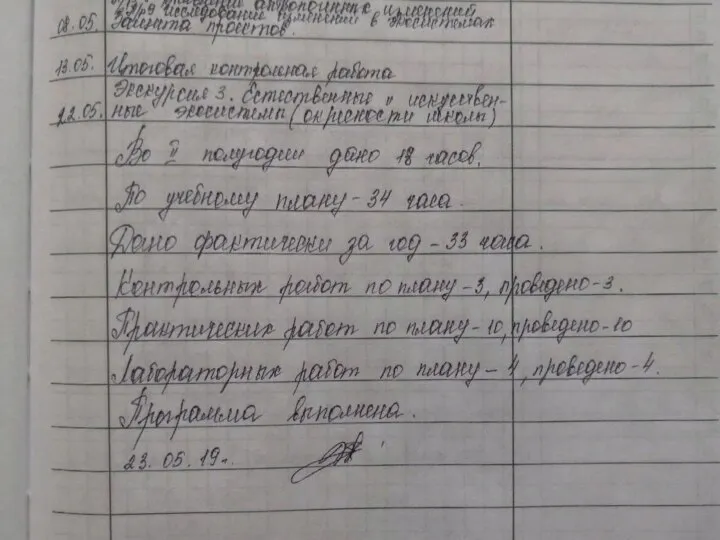 антропогенных изменений
П/р 9 Исследование изменений в экосистемах
08.05. Защита проектов.
13.05. Итоговая контрольная работа
Экскурсия 3. Естественные и искуствен-
22.05. ные экосистемы (окресности школы)
Во II полугодии дано 18 часов.
По учебному плану - 34 часа.
Дано фактически за год - 33 часа.
Контрольных работ по плану - 3, проведено - 3.
Практических работ по плану - 10, проведено - 10
Лабораторных работ по плану - 4, проведено - 4.
Программа выполнена.
23.05.19г.